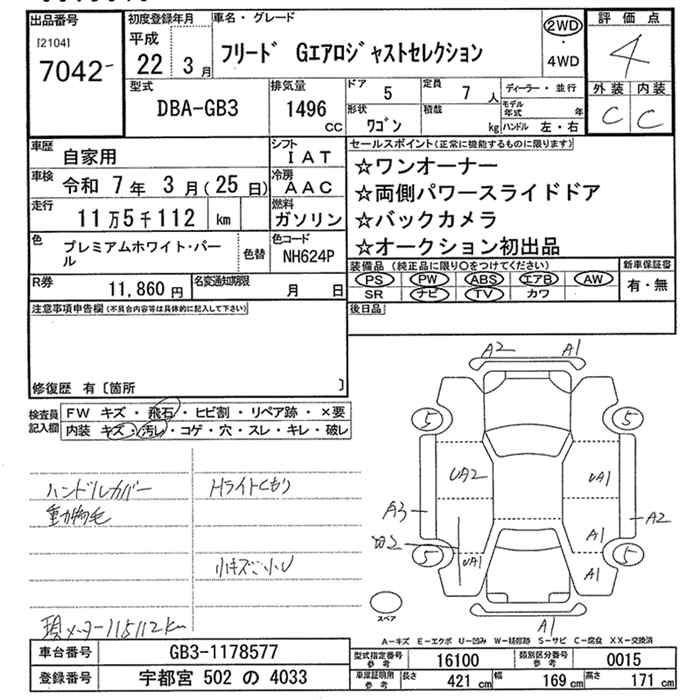 出品番号
[2104]
7042
初度登録年月
平成
22 3月
車名・グレード
フリード Gエアロジャストセレクション
2WD
・
4WD
評価点
4
外装 内装
C C
型式
DBA-GB3
排気量
1496
CC
ドア
5
定員
7人
形状
ワゴン
積載
kg
ディーラー・並行
モデル年式 年
ハンドル 左・右
車歴
自家用
シフト
IAT
車検
令和 7年 3月(25日)
冷房
AAC
走行
11万5千112 km
燃料
ガソリン
色
プレミアムホワイト・パール
色替
色コード
NH624P
R券
11,860円
名変通知期限
月 日
セールスポイント(正常に機能するものに限ります)
☆ワンオーナー
☆両側パワースライドドア
☆バックカメラ
☆オークション初出品
装備品(純正品に限り○をつけてください)
PS PW ABS エアB AW
SR ナビ TV カワ
新車保証書
有・無
後日品
注意事項申告欄(不具合内容等は具体的に記入して下さい)
修復歴 有〔箇所 〕
検査員記入欄
FW キズ・飛石・ヒビ割・リペア跡・×要
内装 キズ・汚レ・コゲ・穴・スレ・キレ・破レ
ハンドルカバー
動物毛
Hライトくもり
小キズ・小U
現メーター115112km
A2 A1
5 5
UA2 UA1
A3 A2
A1
UA1 A1
5 5
A1
スペア
A-キズ E-エクボ U-凹み W-補修跡 S-サビ C-腐食 XX-交換済
車台番号
GB3-1178577
登録番号
宇都宮 502 の 4033
型式指定番号
参考
16100
類別区分番号
参考
0015
車庫証明用
参考
長さ 421 cm 幅 169 cm 高さ 171 cm